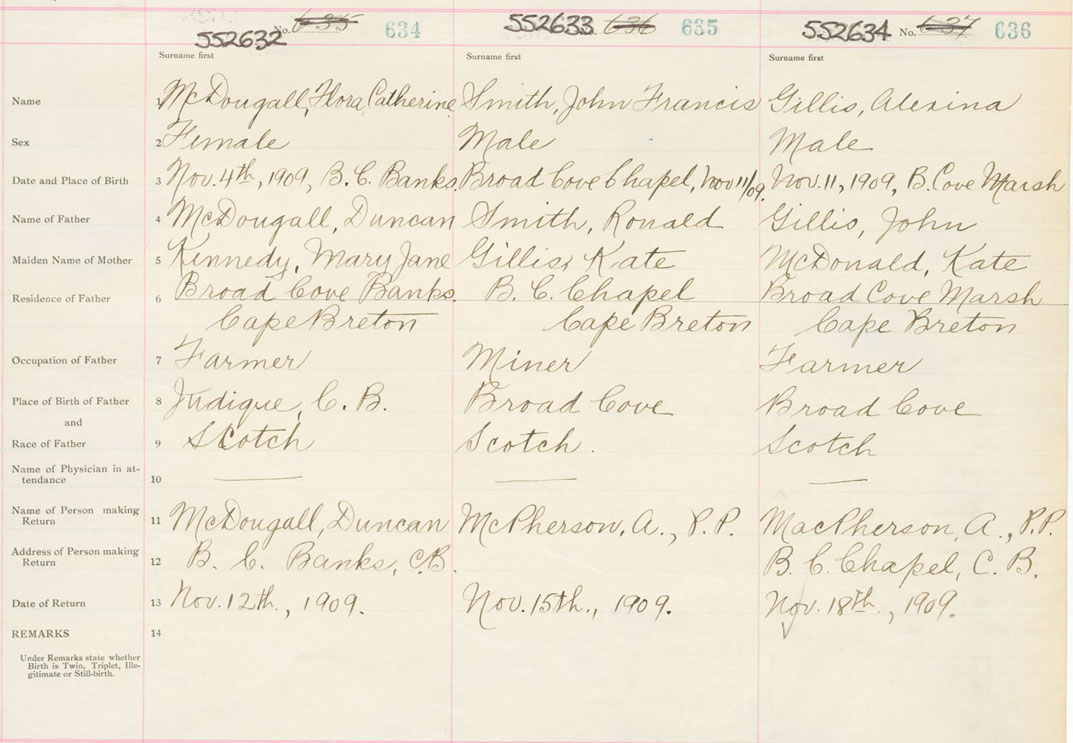 552632 No. 635 634 552633 636 635 552634 No. 637 636
Surname first Surname first Surname first
Name 1 McDougall, Flora Catherine Smith, John Francis Gillis, Alexina
Sex 2 Female Male Male
Date and Place of Birth 3 Nov. 4th, 1909, B. C. Banks Broad Cove Chapel, Nov 11/09. Nov. 11, 1909, B. Cove Marsh
Name of Father 4 McDougall, Duncan Smith, Ronald Gillis, John
Maiden Name of Mother 5 Kennedy, Mary Jane Gillis, Kate McDonald, Kate
Residence of Father 6 Broad Cove Banks. B. C. Chapel Broad Cove Marsh
Cape Breton Cape Breton Cape Breton
Occupation of Father 7 Farmer Miner Farmer
Place of Birth of Father 8 Judique, C. B. Broad Cove Broad Cove
and
Race of Father 9 Scotch Scotch. Scotch
Name of Physician in at-
tendance 10
Name of Person making
Return 11 McDougall, Duncan McPherson, A., P.P. MacPherson, A., P.P.
Address of Person making
Return 12 B. C. Banks, C.B. B. C. Chapel, C. B.
Date of Return 13 Nov. 12th., 1909. Nov. 15th., 1909. Nov. 18th., 1909.
REMARKS 14
Under Remarks state whether
Birth is Twin, Triplet, Ille-
gitimate or Still-birth.